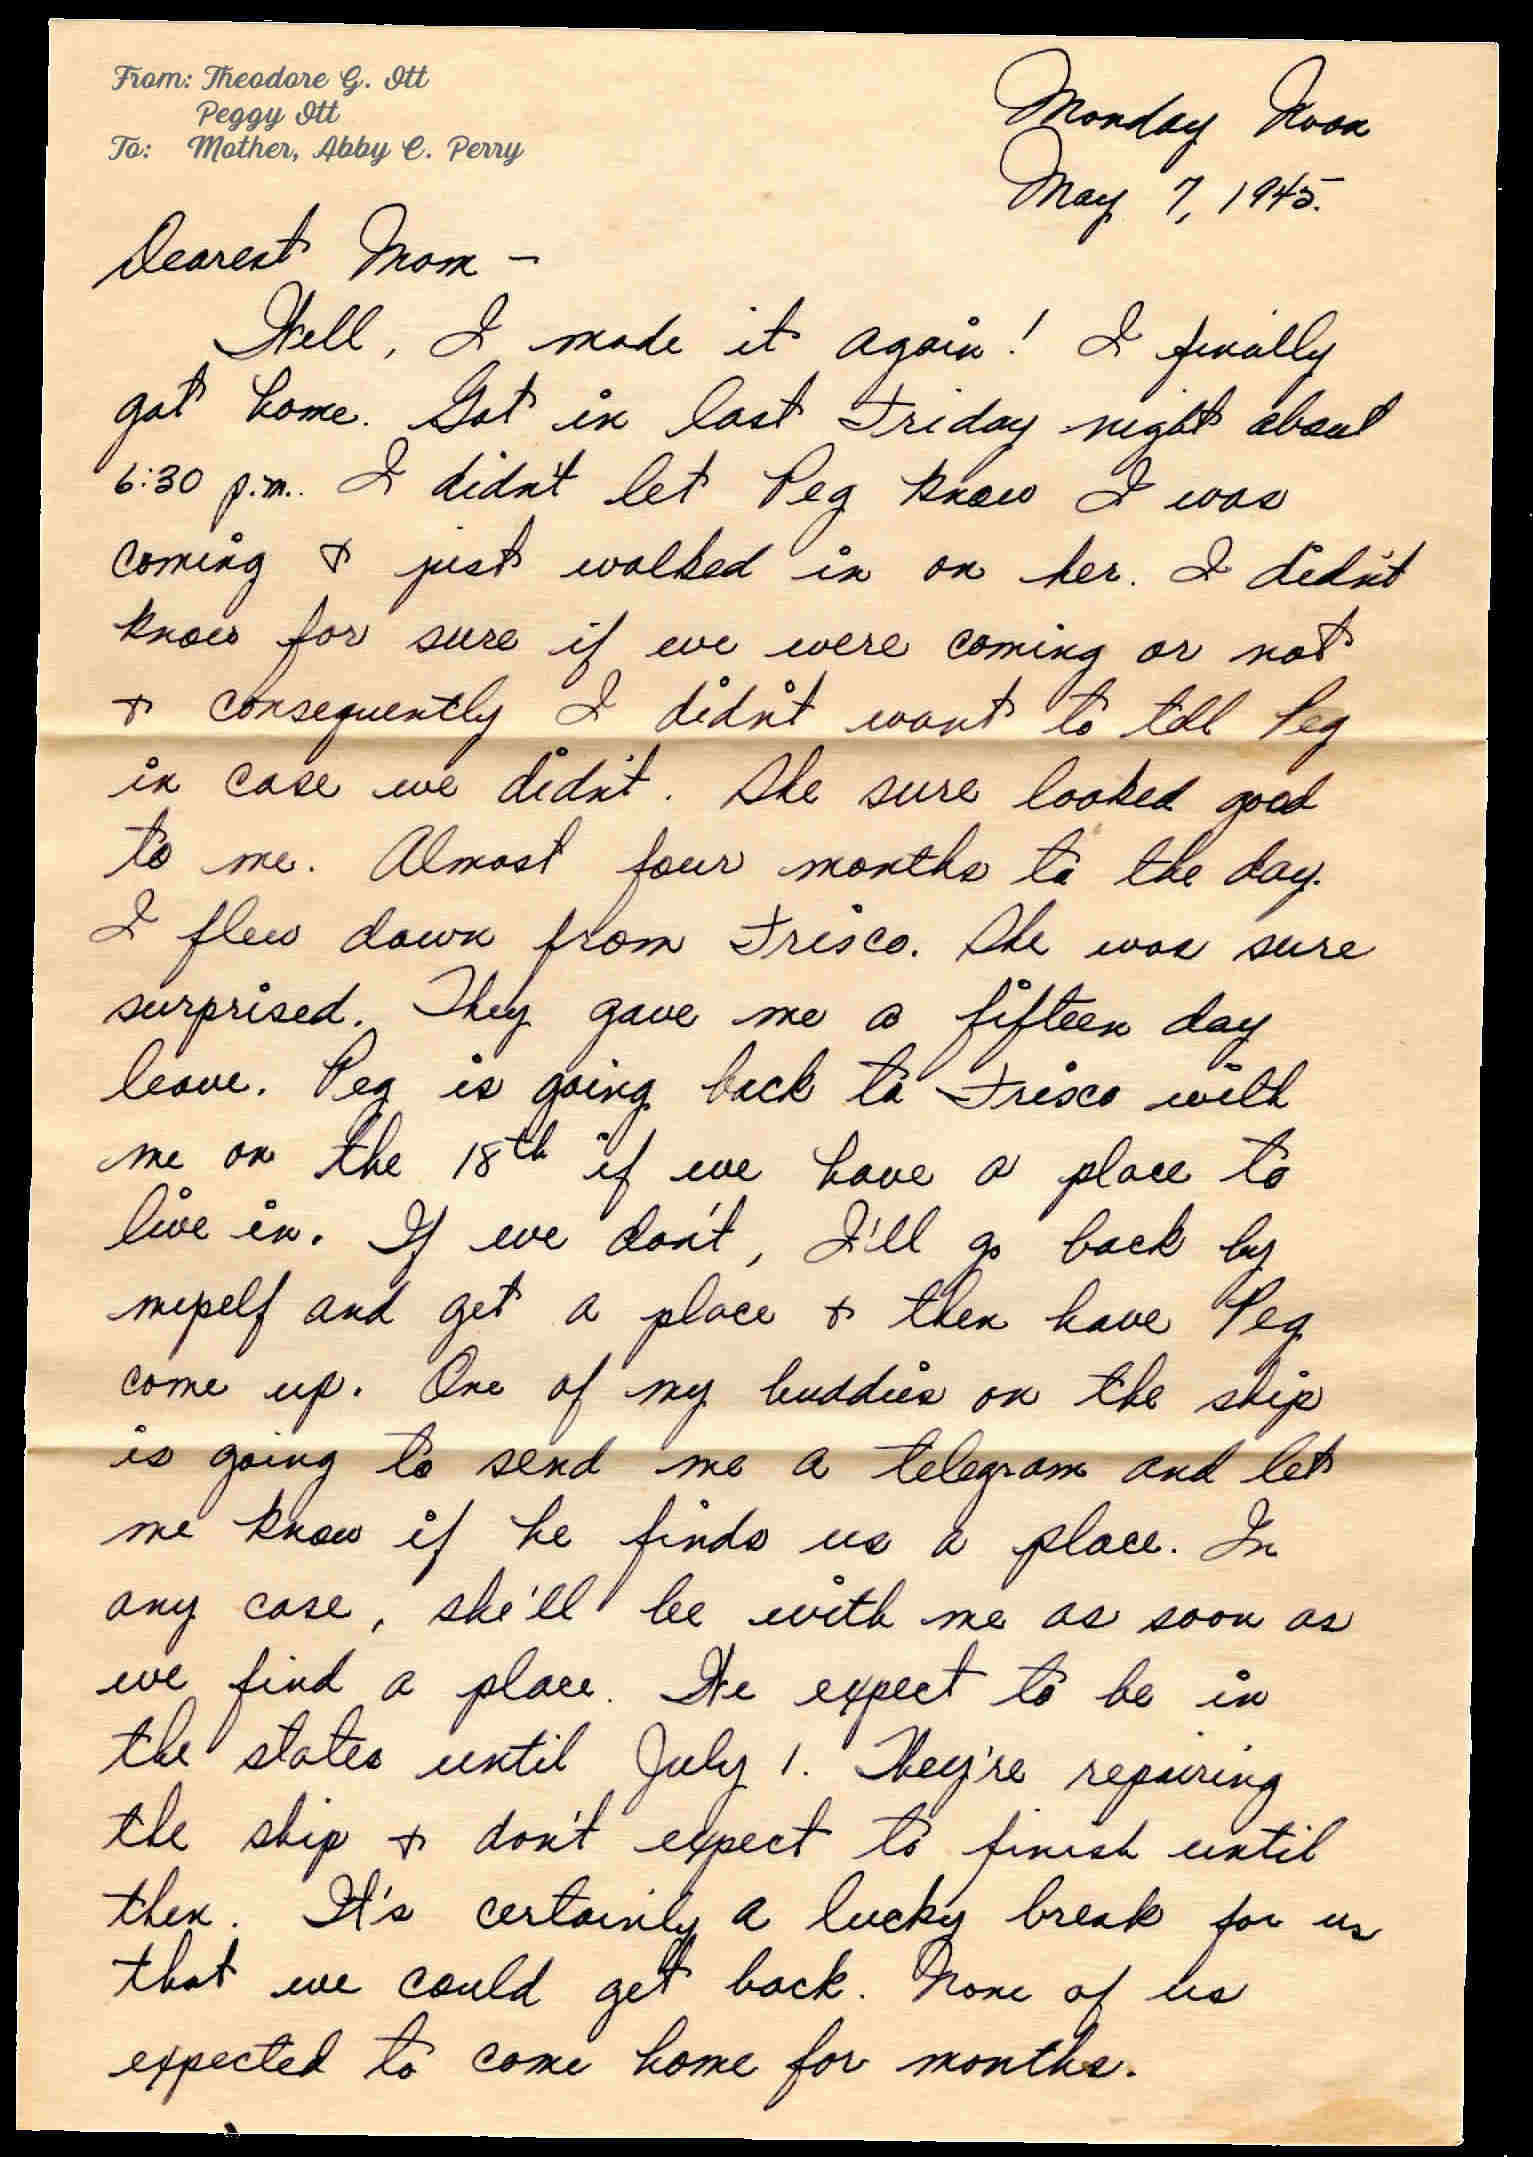 From: Theodore G. Ott
Peggy Ott
To: Mother, Abby C. Perry
Monday Noon
May 7, 1945.
Dearest Mom -
Well, I made it again! I finally
got home. Got in last Friday night about
6:30 p.m.. I didn't let Peg know I was
coming & just walked in on her. I didn't
know for sure if we were coming or not
& consequently I didn't want to tell Peg
in case we didn't. She sure looked good
to me. Almost four months to the day.
I flew down from Frisco. She was sure
surprised. They gave me a fifteen day
leave. Peg is going back to Frisco with
me on the 18th if we have a place to
live in. If we don't, I'll go back by
myself and get a place & then have Peg
come up. One of my buddies on the ship
is going to send me a telegram and let
me know if he finds us a place. In
any case, she'll be with me as soon as
we find a place. We expect to be in
the states until July 1. They're repairing
the ship & don't expect to finish until
then. It's certainly a lucky break for us
that we could get back. None of us
expected to come home for months.